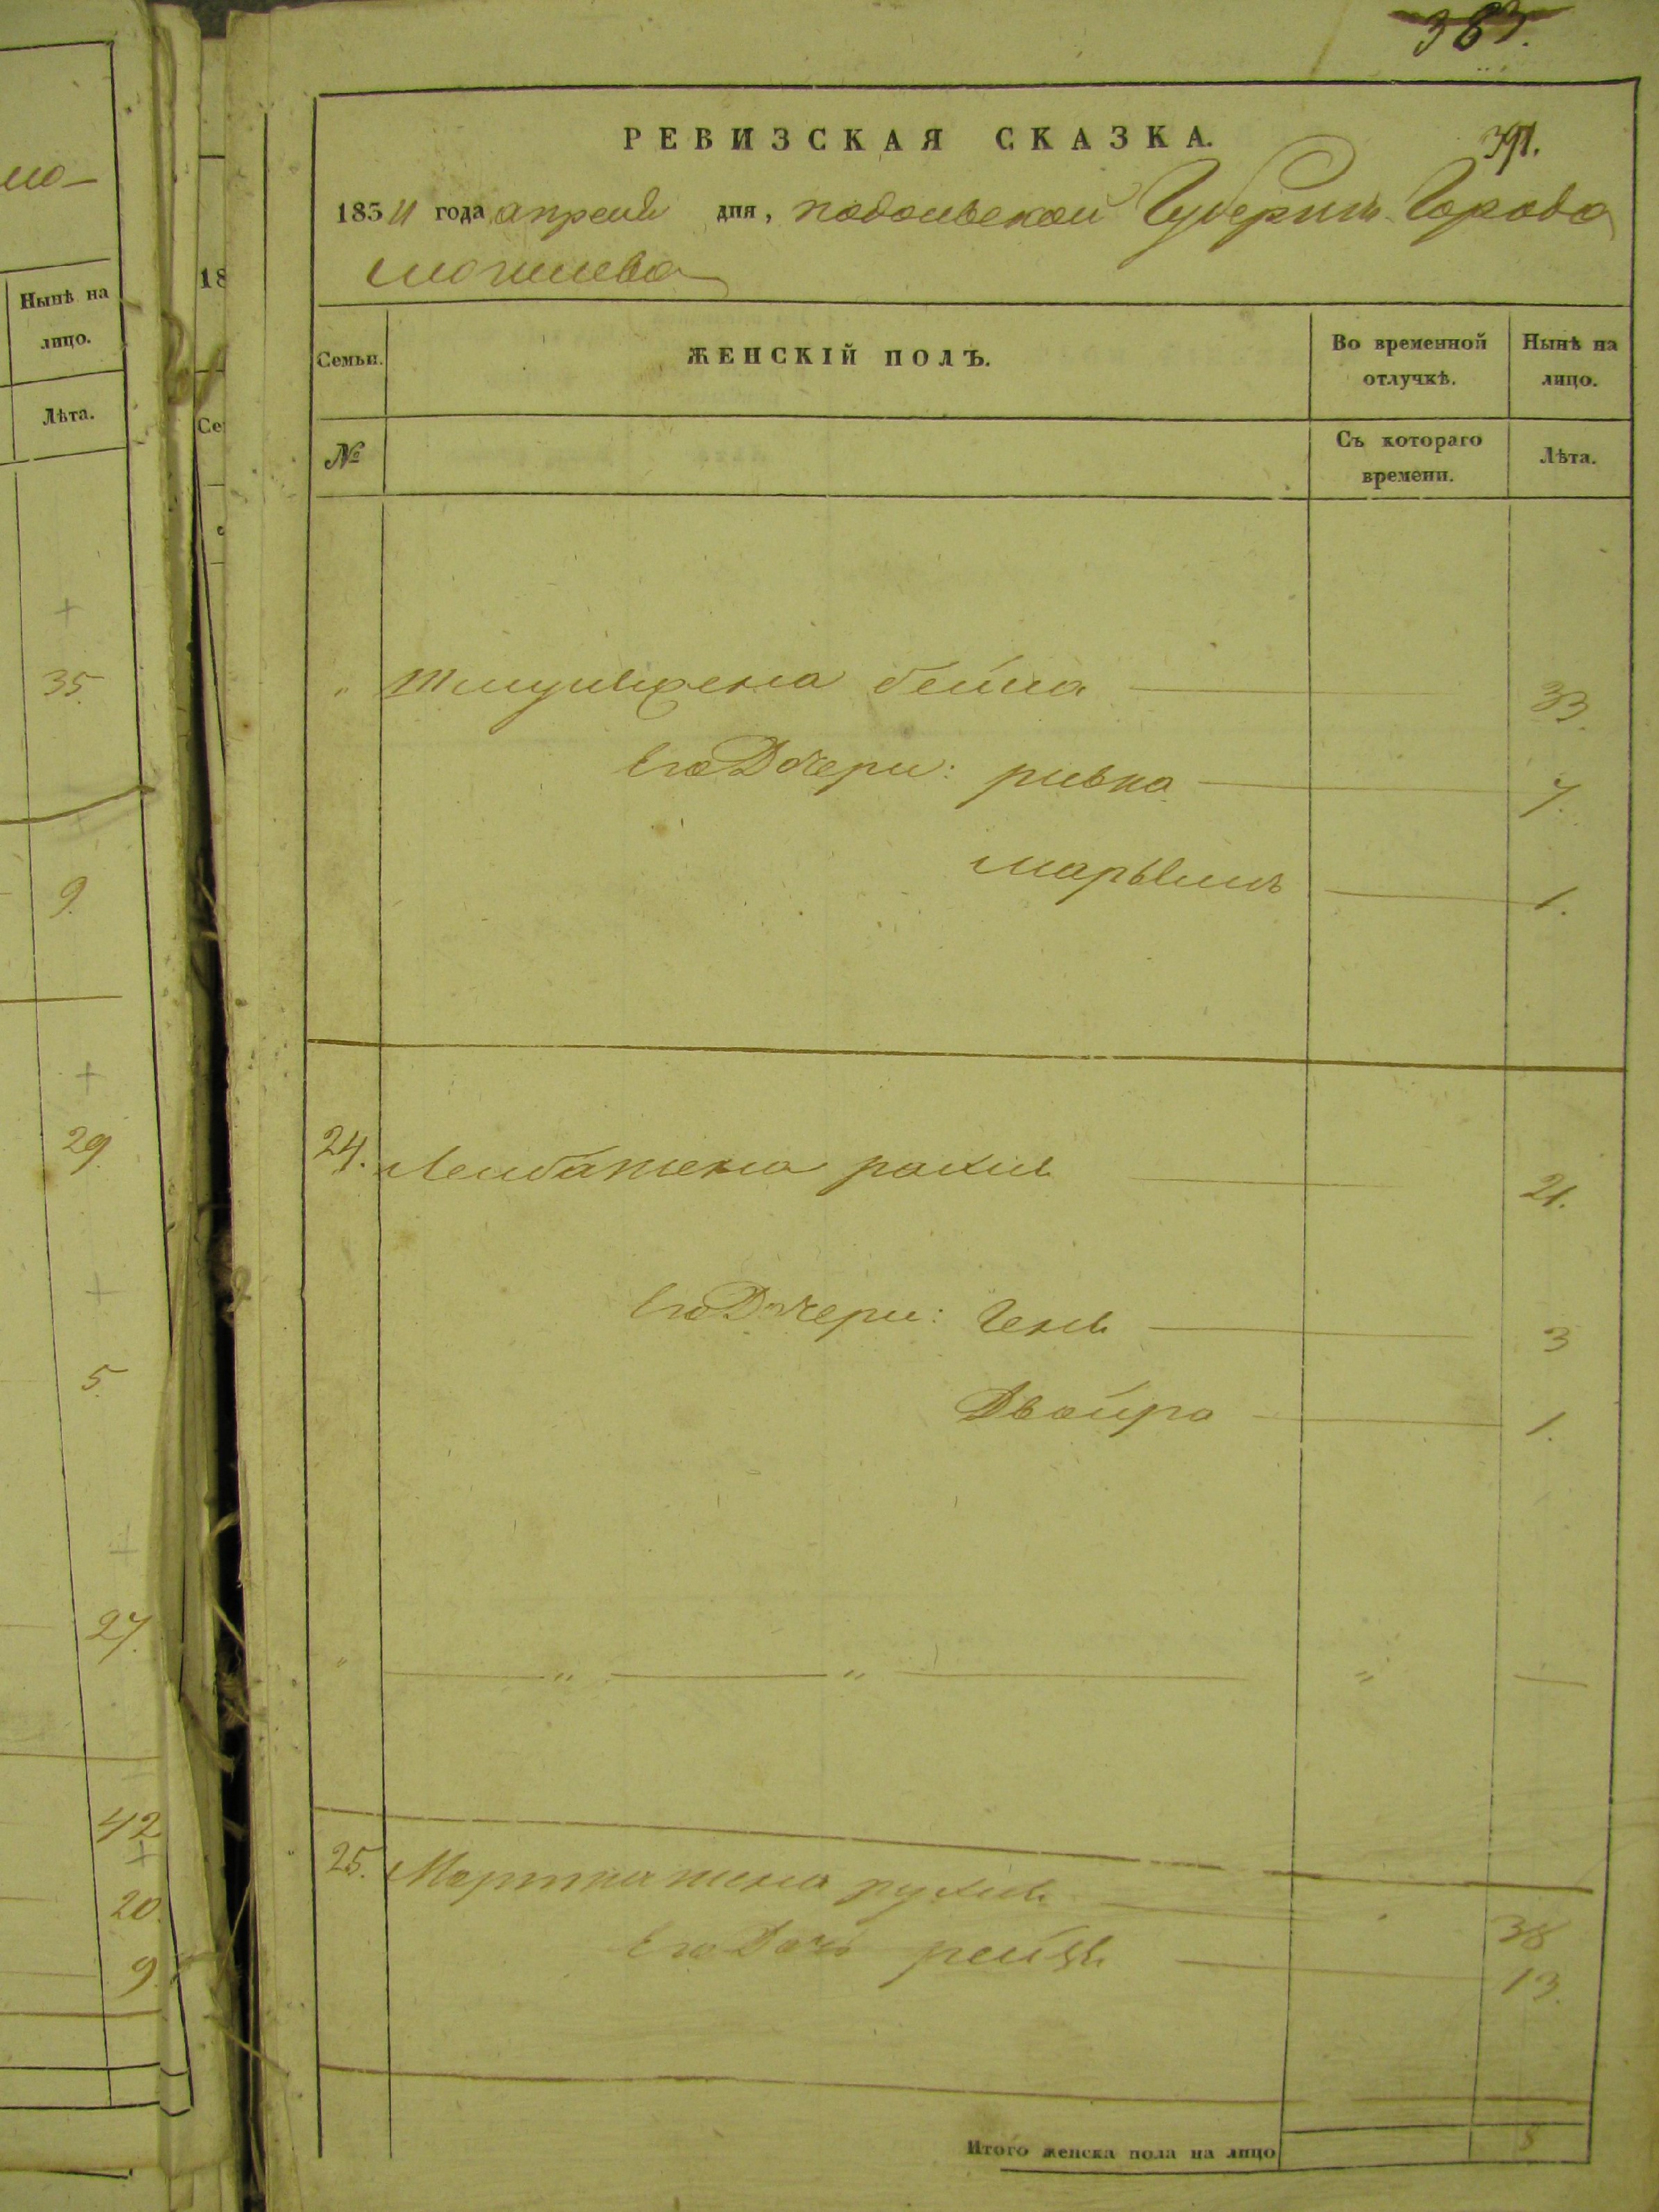 383.
РЕВИЗСКАЯ СКАЗКА.
391.
185 года апреля дня, подольской Губернии Города
могилева
Семьи.
ЖЕНСКІЙ ПОЛЪ.
Во временной отлучкѣ.
Нынѣ на лицо.
№
Съ котораго времени.
Лѣта.
" Шмуля жена бейла 33.
Его Дочери: ривка 7.
марьямъ 1.
24. Лейба жена рахля 21.
Его Дочери: Геня 3
Двойра 1.
" " " " 
25. жена рухля 38
Его Дочь рейзя 13.
Итого женска пола на лицо 8
Нынѣ на
лицо.
Лѣта.
35.
9.
29.
5.
27.
42
20.
9.
18
Се